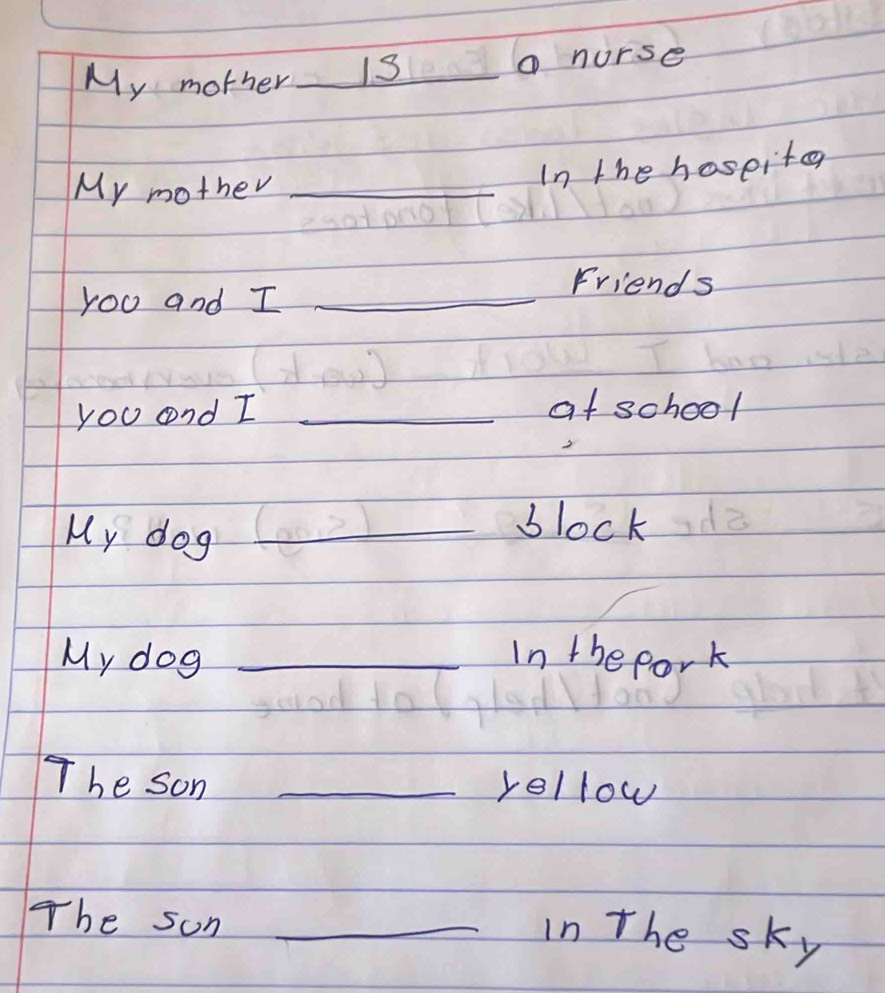 My mother is a nurse
My mother ________ in the hospita
you and I ________ Friends
you and I ________ at school
My dog ________ block
My dog ________ in the park
The son ________ yellow
The sun ________ in The sky